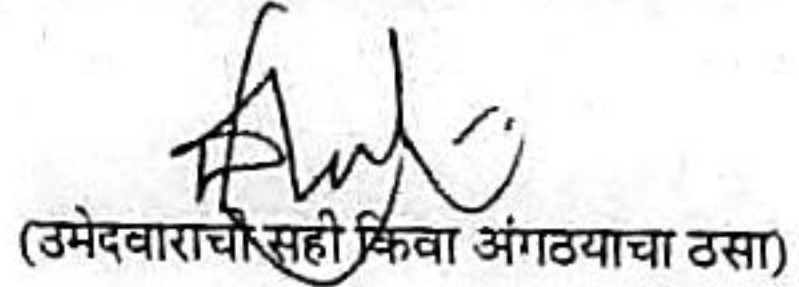 (उमेदवाराची सही किवा अंगठयाचा ठसा)